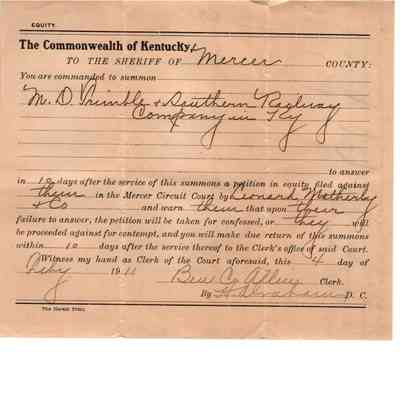 EQUITY.
The Commonwealth of Kentucky,
TO THE SHERIFF OF Mercer COUNTY:
You are commanded to summon
M. D. Trimble & Southern Railway
Company in Ky
to answer
in 10 days after the service of this summons a petition in equity filed against
them in the Mercer Circuit Court by Leonard
& Co and warn them that upon their
failure to answer, the petition will be taken for confessed, or they will
be proceeded against for contempt, and you will make due return of this summons
within 10 days after the service thereof to the Clerk's office of said Court.
Witness my hand as Clerk of the Court aforesaid, this 4 day of
Feby 19 Ben C. Allin Clerk.
By D. C.